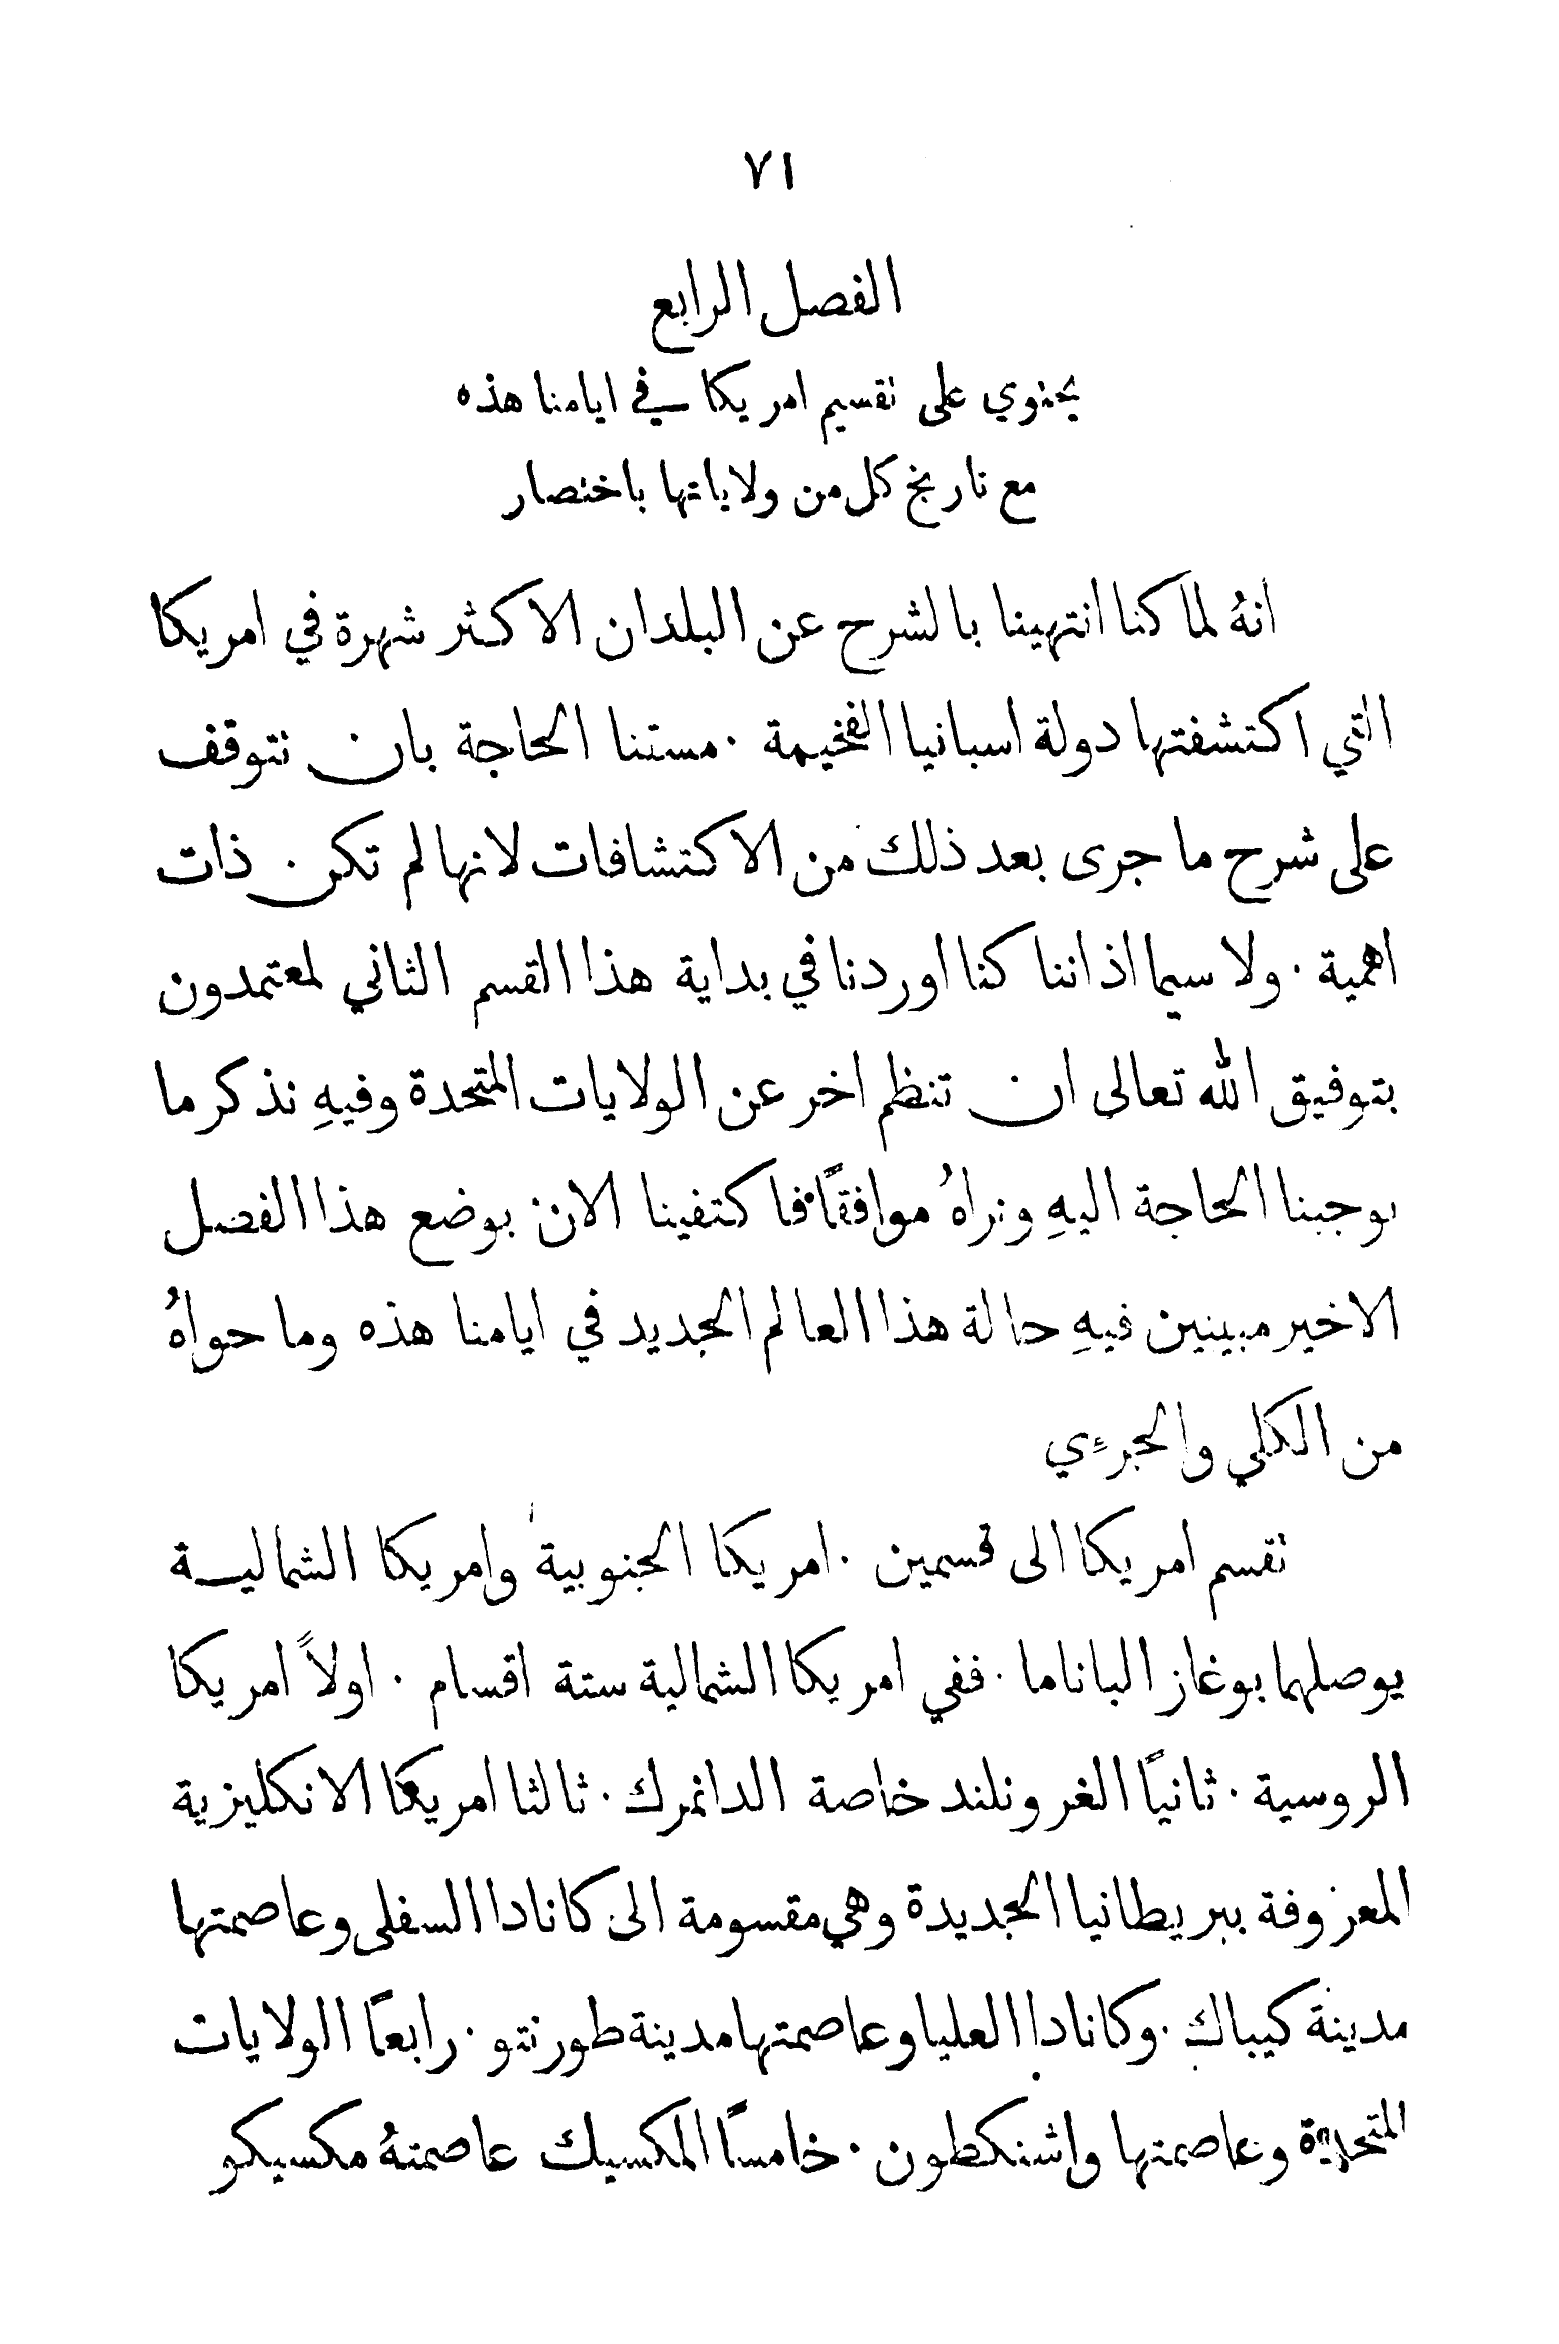 ٧١
الفصل الرابع
يحتوي على تقسيم امريكا في ايامنا هذه
مع تاريخ كل من ولاياتها باختصار
انهُ لما كنا انتهينا بالشرح عن البلدان الاكثر شهرة في امريكا
التي اكتشفتها دولة اسبانيا الفخيمة . مستنا الحاجة بان نتوقف
على شرح ما جرى بعد ذلك من الاكتشافات لانها لم تكن ذات
اهمية . ولا سيما اذ اننا كنا اوردنا في بداية هذا القسم الثاني لمعتمدون
بتوفيق الله تعالى ان تنظم اخر عن الولايات المتحدة وفيهِ نذكر ما
يوجبنا الحاجة اليهِ ونراهُ موافقًا فاكتفينا الان بوضع هذا الفصل
الاخير مبينين فيهِ حالة هذا العالم الجديد في ايامنا هذه وما حواهُ
من الكلي والجرءي
تقسم امريكا الى قسمين . امريكا الجنوبية وامريكا الشمالية
يوصلهما بوغاز الباناما . ففي امريكا الشمالية ستة اقسام . اولاً امريكا
الروسية . ثانيًا الغرونلند خاصة الدانمرك . ثالثا امريكا الانكليزية
المعروفة ببريطانيا الجديدة وهي مقسومة الى كانادا السفلى وعاصمتها
مدينة كيباك . وكانادا العليا وعاصمتها مدينة طورنتو . رابعًا الولايات
المتحدة وعاصمتها واشنكطون . خامسًا المكسيك عاصمتهُ مكسيكو